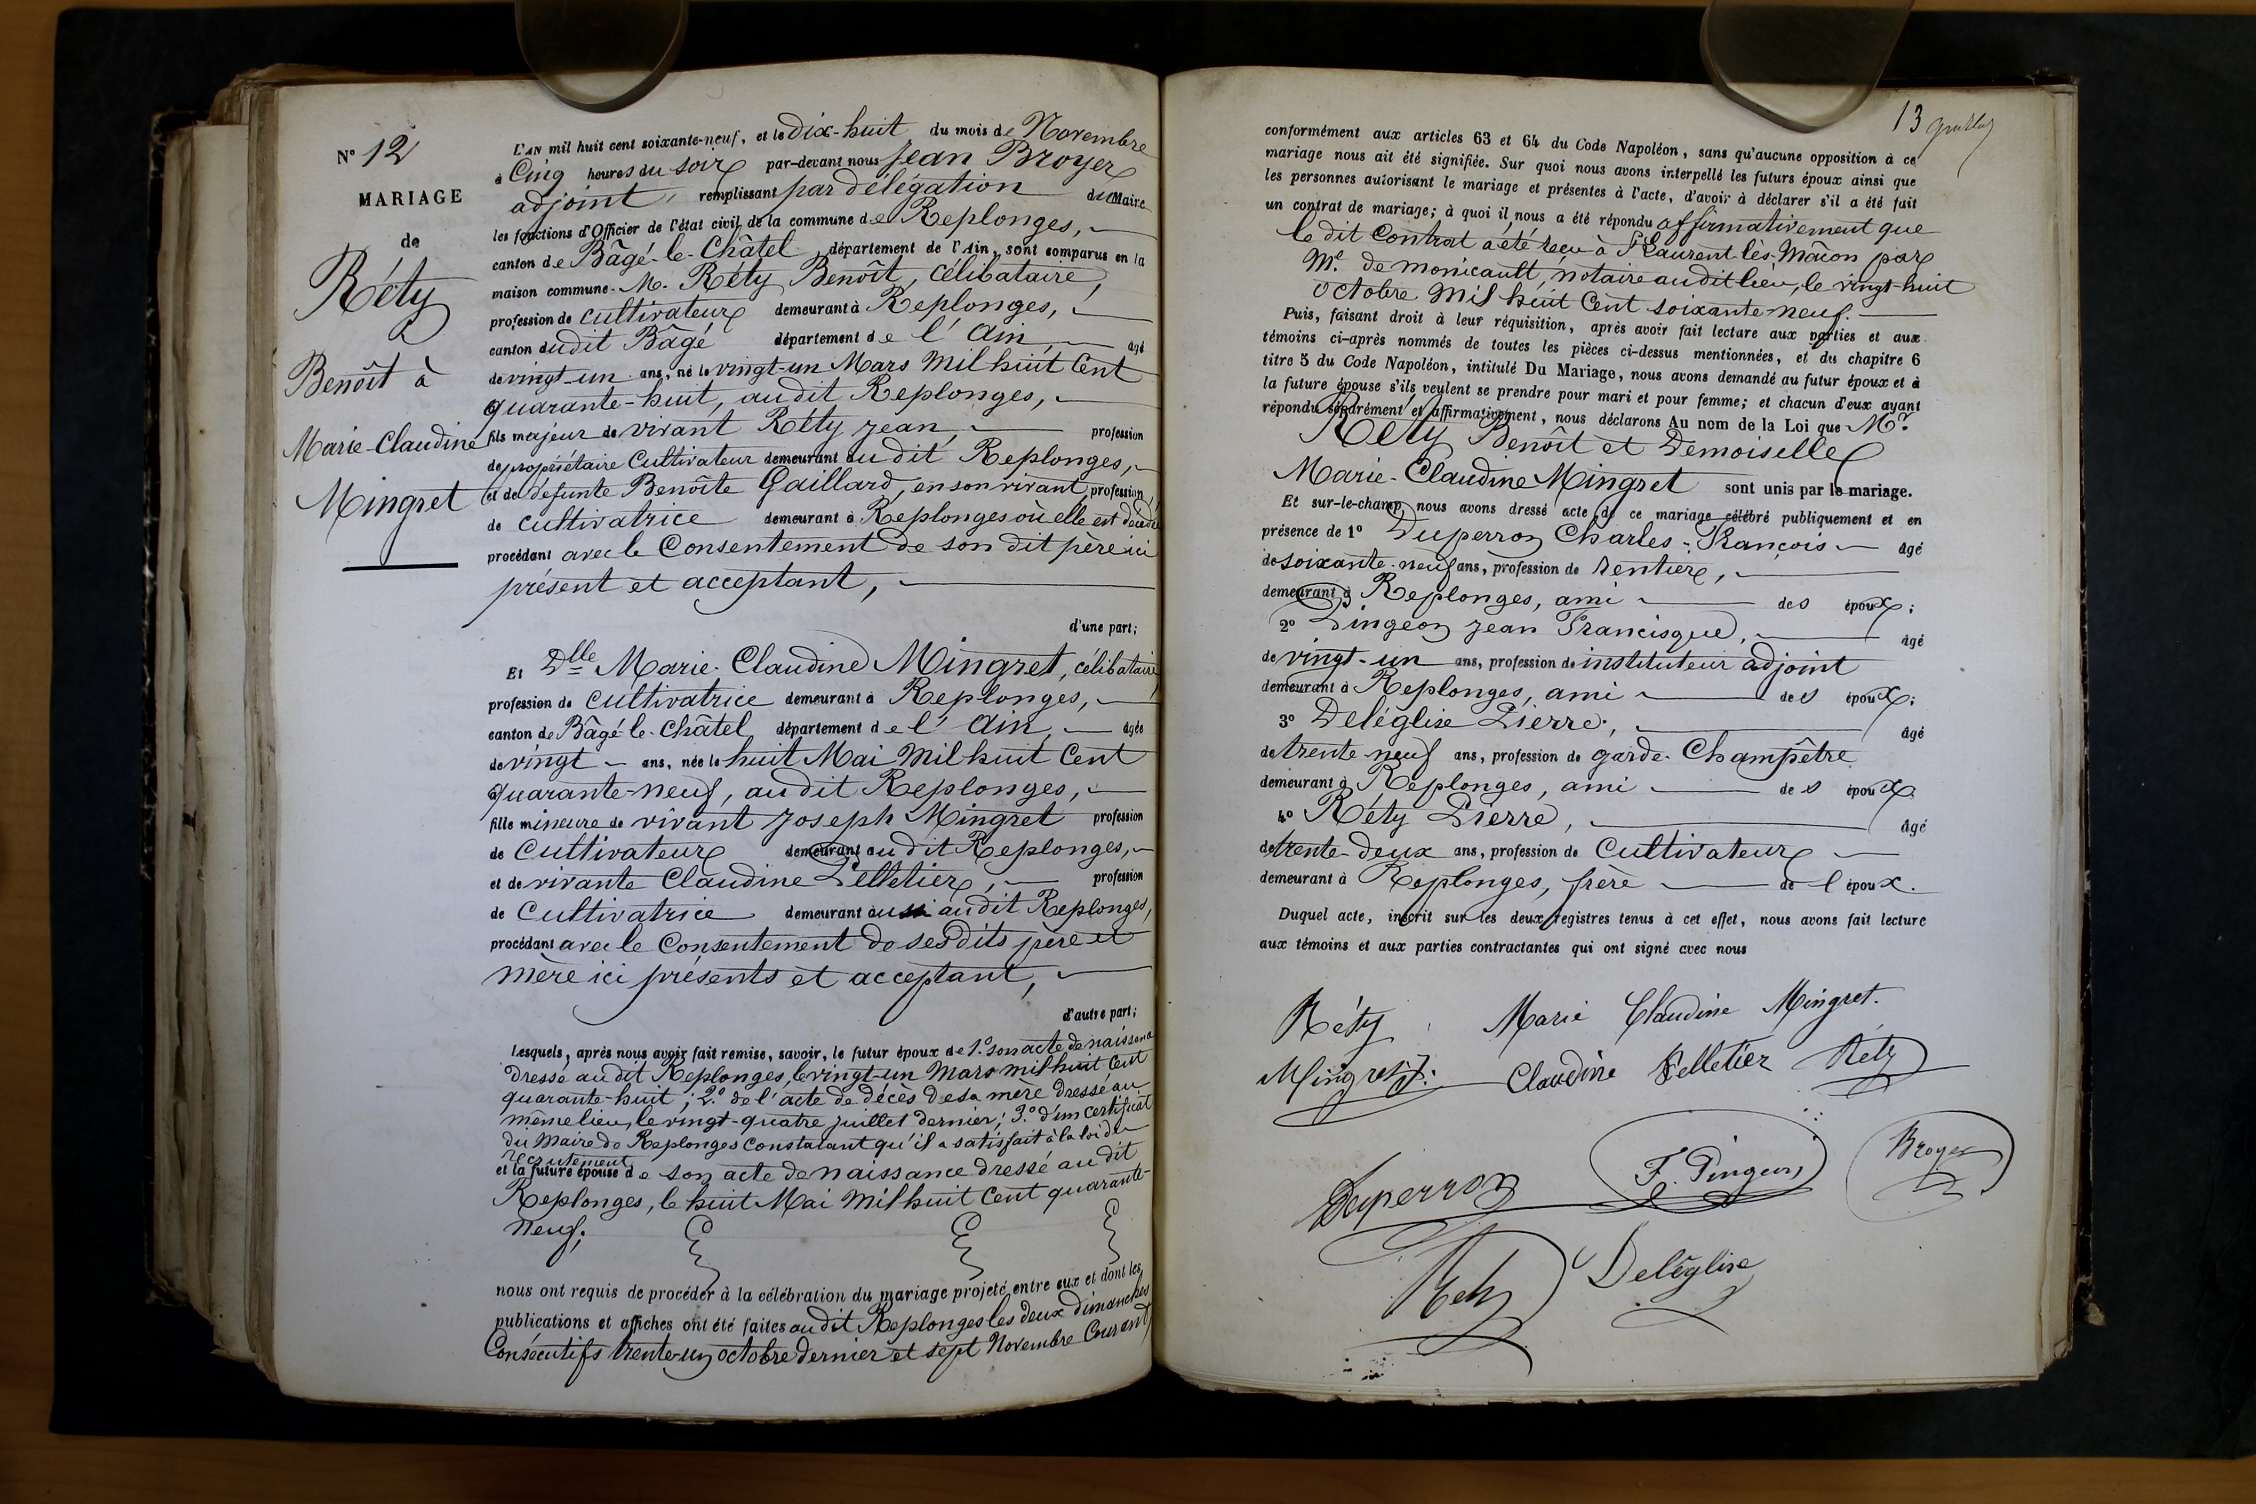 N° 12
MARIAGE
de
Réty
Benoît à
Marie-Claudine
Mingret
L'AN mil huit cent soixante-neuf, et le Dix-huit du mois de Novembre
à Cinq heures du soir par-devant nous Jean Broyer
adjoint, remplissant par délégation du Maire
les fonctions d'Officier de l'état civil de la commune de Replonges,
canton de Bâgé-le-Châtel département de l'Ain, sont comparus en la
maison commune. M. Réty Benoît, célibataire,
profession de cultivateur demeurant à Replonges,
canton dudit Bâgé département de l'Ain, âgé
de vingt-un ans, né le vingt-un Mars Mil huit Cent
quarante-huit, audit Replonges,
fils majeur de vivant Réty Jean, profession
de propriétaire Cultivateur demeurant audit Replonges,
et de défunte Benoîte Gaillard, en son vivant, profession
de cultivatrice demeurant à Replonges où elle est décédée
procédant avec le Consentement de son dit père ici
présent et acceptant,
d'une part;
Et Dlle Marie-Claudine Mingret, célibataire
profession de cultivatrice demeurant à Replonges,
canton de Bâgé-le-Châtel département de l'Ain, âgée
de vingt ans, née le huit Mai Mil huit Cent
quarante-neuf, audit Replonges,
fille mineure de vivant Joseph Mingret profession
de Cultivateur demeurant audit Replonges,
et de vivante Claudine Pelletier, profession
de Cultivatrice demeurant aussi audit Replonges,
procédant avec le Consentement de ses dits père et
mère ici présents et acceptant,
d'autre part;
Lesquels, après nous avoir fait remise, savoir, le futur époux de 1.° son acte de naissance
dressé audit Replonges, le vingt-un Mars mil huit Cent
quarante-huit; 2.° de l'acte de décès de sa mère dressé au
même lieu, le vingt-quatre juillet dernier; 3.° d'un certificat
du Maire de Replonges constatant qu'il a satisfait à la loi du
recrutement
et la future épouse de son acte de naissance dressé audit
Replonges, le huit Mai Mil huit Cent quarante-
neuf;
nous ont requis de procéder à la célébration du mariage projeté entre eux et dont les
publications et affiches ont été faites audit Replonges les deux dimanches
Consécutifs trente-un octobre dernier et sept Novembre Courant
13
conformément aux articles 63 et 64 du Code Napoléon, sans qu'aucune opposition à ce
mariage nous ait été signifiée. Sur quoi nous avons interpellé les futurs époux ainsi que
les personnes autorisant le mariage et présentes à l'acte, d'avoir à déclarer s'il a été fait
un contrat de mariage; à quoi il nous a été répondu affirmativement que
le dit Contrat a été reçu à St Laurent-lès-Mâcon par
Me. de monicault, notaire audit lieu, le vingt-huit
octobre Mil huit Cent soixante-neuf.
Puis, faisant droit à leur réquisition, après avoir fait lecture aux parties et aux
témoins ci-après nommés de toutes les pièces ci-dessus mentionnées, et du chapitre 6
titre 5 du Code Napoléon, intitulé Du Mariage, nous avons demandé au futur époux et à
la future épouse s'ils veulent se prendre pour mari et pour femme; et chacun d'eux ayant
répondu séparément et affirmativement, nous déclarons Au nom de la Loi que Mr.
Réty Benoît et Demoiselle
Marie-Claudine Mingret sont unis par le mariage.
Et sur-le-champ nous avons dressé acte de ce mariage célébré publiquement et en
présence de 1° Duperron Charles-François âgé
de soixante-neuf ans, profession de rentier,
demeurant à Replonges, ami des époux;
2° Pingeon Jean Francisque, âgé
de vingt-un ans, profession de instituteur adjoint
demeurant à Replonges, ami des époux;
3° Deléglise Pierre, âgé
de trente-neuf ans, profession de garde-Champêtre
demeurant à Replonges, ami des époux
4° Réty Pierre, âgé
de trente-deux ans, profession de Cultivateur
demeurant à Replonges, frère de l'époux.
Duquel acte, inscrit sur les deux registres tenus à cet effet, nous avons fait lecture
aux témoins et aux parties contractantes qui ont signé avec nous
Réty Marie Claudine Mingret.
Mingret J. Claudine Pelletier Réty
Duperron F. Pingeon Broyer
Rety Deléglise